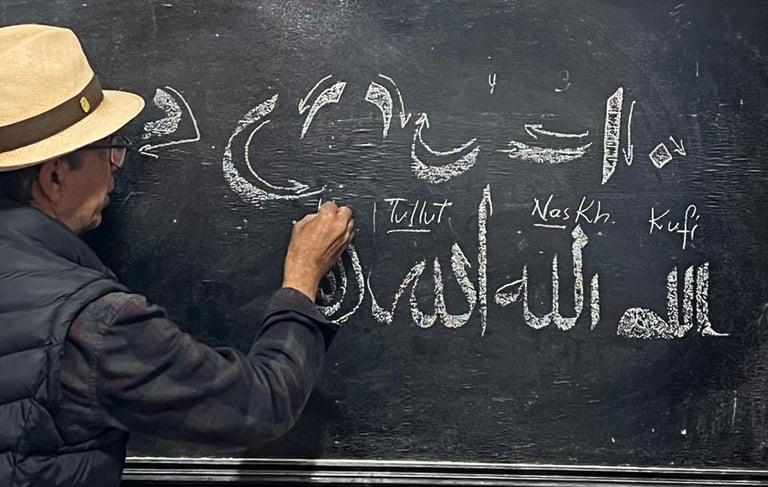 4 3 1
Tullut NasKh. Kufi
الله الله الله